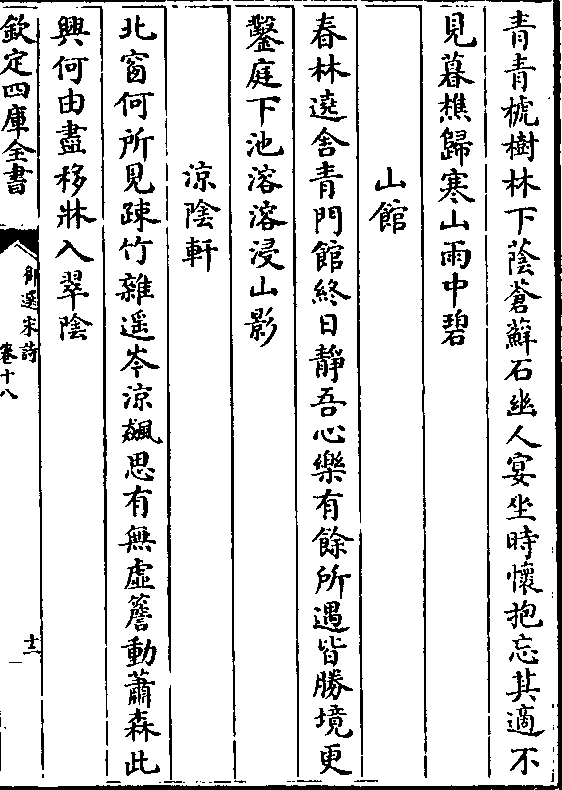 青青樾樹林下蔭蒼蘚石幽人宴坐時懷抱忘其適不
見暮樵歸寒山雨中碧
山館
春林遶舍青門館終日靜吾心樂有餘所遇皆勝境更
鑿庭下池溶溶浸山影
涼陰軒
北窗何所見疎竹雜遥岑涼飆思有無虛簷動蕭森此
興何由盡移牀入翠陰
欽定四庫全書
御選宋詩
卷十八
十二